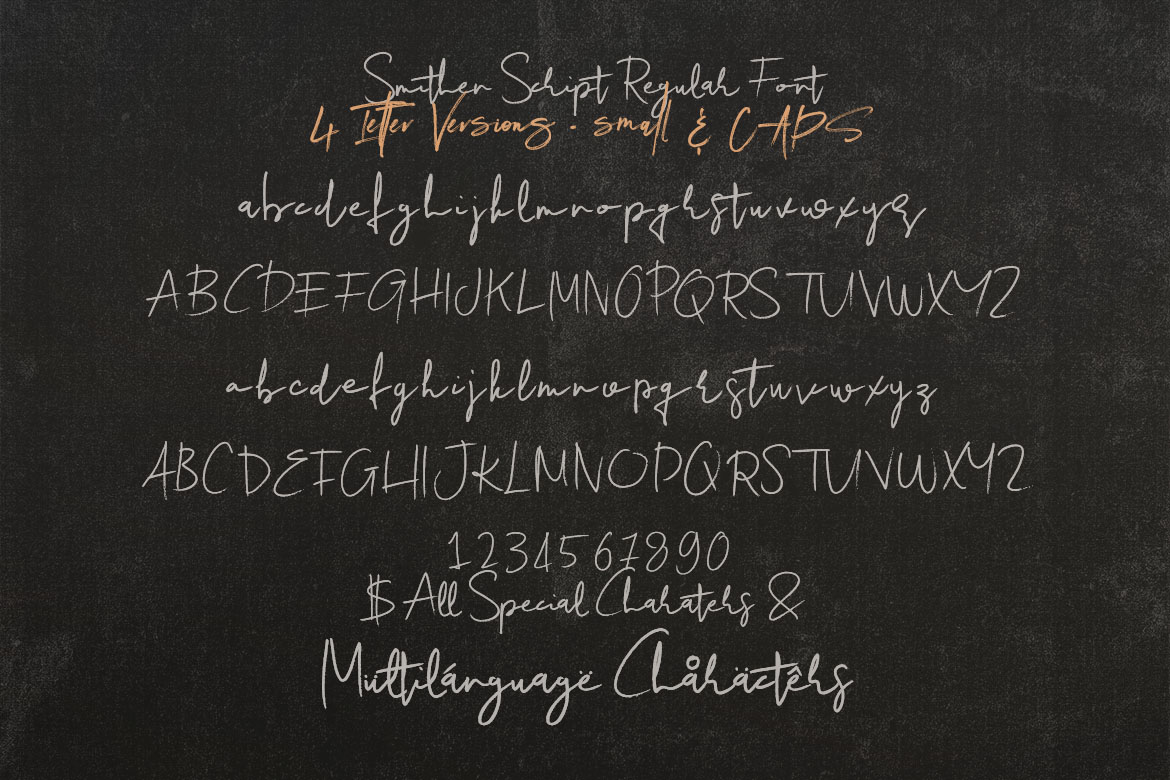 Smithen Script Regular Font
4 letter Versions - small & CAPS
abcdefghijklmnopqrstuvwxyz
ABCDEFGHIJKLMNOPQRSTUVWXYZ
abcdefghijklmnopqrstuvwxyz
ABCDEFGHIJKLMNOPQRSTUVWXYZ
1234567890
$ All Special Charaters &
Mültilánguagë Chåräctêrs